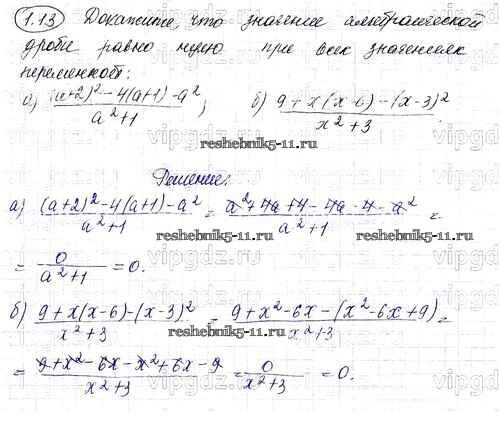 1.13 Докажите, что значение алгебраической
дроби равно нулю при всех значениях
переменной:
а) (a+2)²-4(a+1)-a² / a²+1 ; б) 9+x(x-6)-(x-3)² / x²+3 .
reshebnik5-11.ru
reshebnik5-11.ru
Решение:
а) (a+2)²-4(a+1)-a² / a²+1 = a²+4a+4-4a-4-a² / a²+1 =
reshebnik5-11.ru
reshebnik5-11.ru
= 0 / a²+1 = 0.
б) 9+x(x-6)-(x-3)² / x²+3 = 9+x²-6x-(x²-6x+9) / x²+3 =
reshebnik5-11.ru
= 9+x²-6x-x²+6x-9 / x²+3 = 0 / x²+3 = 0.